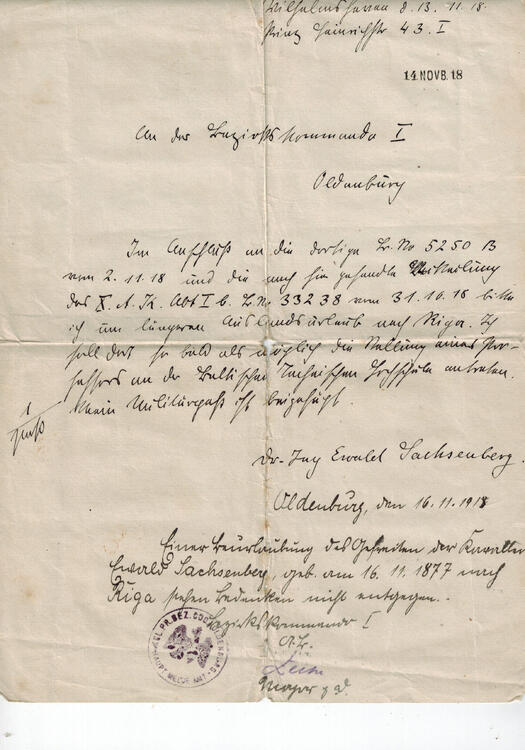 Wilhelmshaven 8. 13. 11. 18.
Prinz Heinrichstr 43. I
14 NOVB. 18
An das Bezirkskommando I
Oldenburg
Im Anschluß an die dortige Br. No 5250 B
vom 2. 11. 18 und die nach hier gesandte Mitteilung
des X. A. K. Abt I b. Br. No 33238 vom 31. 10. 18 bitte
ich um längeren Auslandsurlaub nach Riga. Ich
soll dort so bald als möglich die Stellung eines Pro-
fessors an der Baltischen Technischen Hochschule antreten.
Mein Militärpaß ist beigefügt.
1
Dr-Ing Ewald Sachsenberg.
Oldenburg, den 16. 11. 1918
Einer Beurlaubung des Gefreiten der Kavallerie
Ewald Sachsenberg, geb. am 16. 11. 1877 nach
Riga stehen Bedenken nicht entgegen.
Bezirkskommando I
KGL. PR. BEZ. COM. I OLDENBURG
HAUPT MELDE AMT
Major z. D.